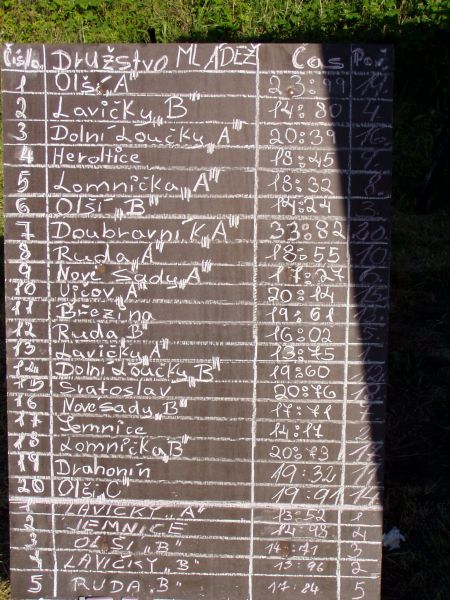 Čísla Družstvo MLÁDEŽ Čas Poř.
1 Olší "A" 23:99 19
2 Lavičky "B" 14:80 4
3 Dolní Loučky "A" 20:39 16
4 Heroltice 18:45 9
5 Lomnička "A" 18:32 8
6 Olší "B" 14:24 3
7 Doubravník "A" 33:82 20
8 Ruda "A" 18:55 10
9 Nové Sady "A" 17:27 6
10 Ujčov "A" 20:14
11 Březina 19:61
12 Ruda "B" 16:02 5
13 Lavičky 13:75 1
14 Dolní Loučky "B" 19:60
15 Svatoslav 20:76
16 Nové Sady "B" 17:71 7
17 Jemnice 14:17 2
18 Lomnička "B" 20:73
19 Drahonín 19:32 11
20 Olší "C" 19:91 14
1 LAVIČKY "A" 13:52 1
2 JEMNICE 14:48
3 OLŠÍ "B" 14:71 3
4 LAVIČKY "B" 13:96 2
5 RUDA "B" 17:84 5